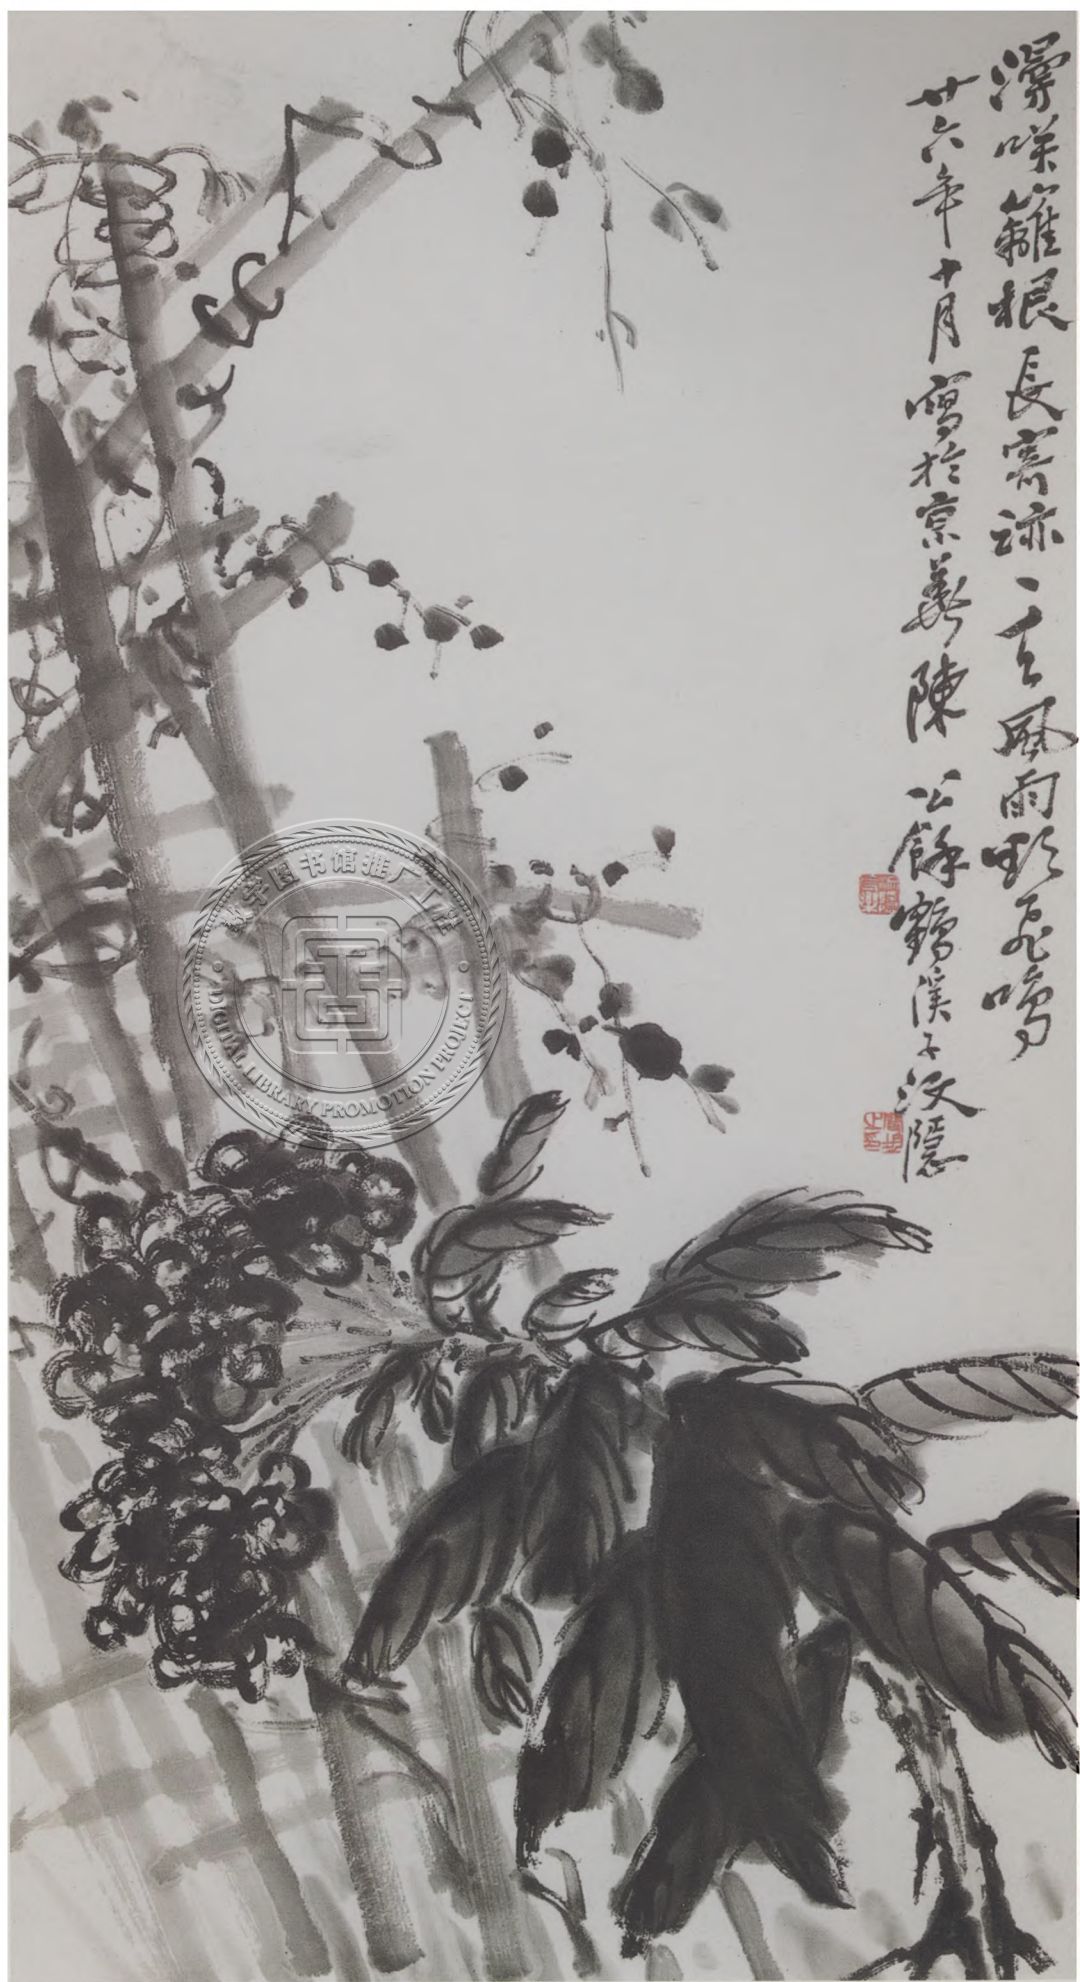 漫咲籬根長寄跡一天風雨飛鳴
廿六年十月寫於京華陳公餘鶴溪子汶隱
数字图书馆推广工程
DIGITAL LIBRARY PROMOTION PROJECT